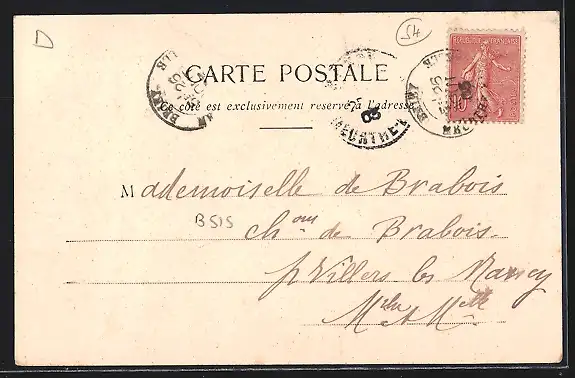 D
54
REPUBLIQUE FRANÇAISE
10
CARTE POSTALE
Ce côté est exclusivement réservé à l'adresse
BRIEY
BRIEY
MEURTHE-
Mademoiselle de Brabois
B515
chau de Brabois.
pr Villers les Nancy
Mthe & Mlle